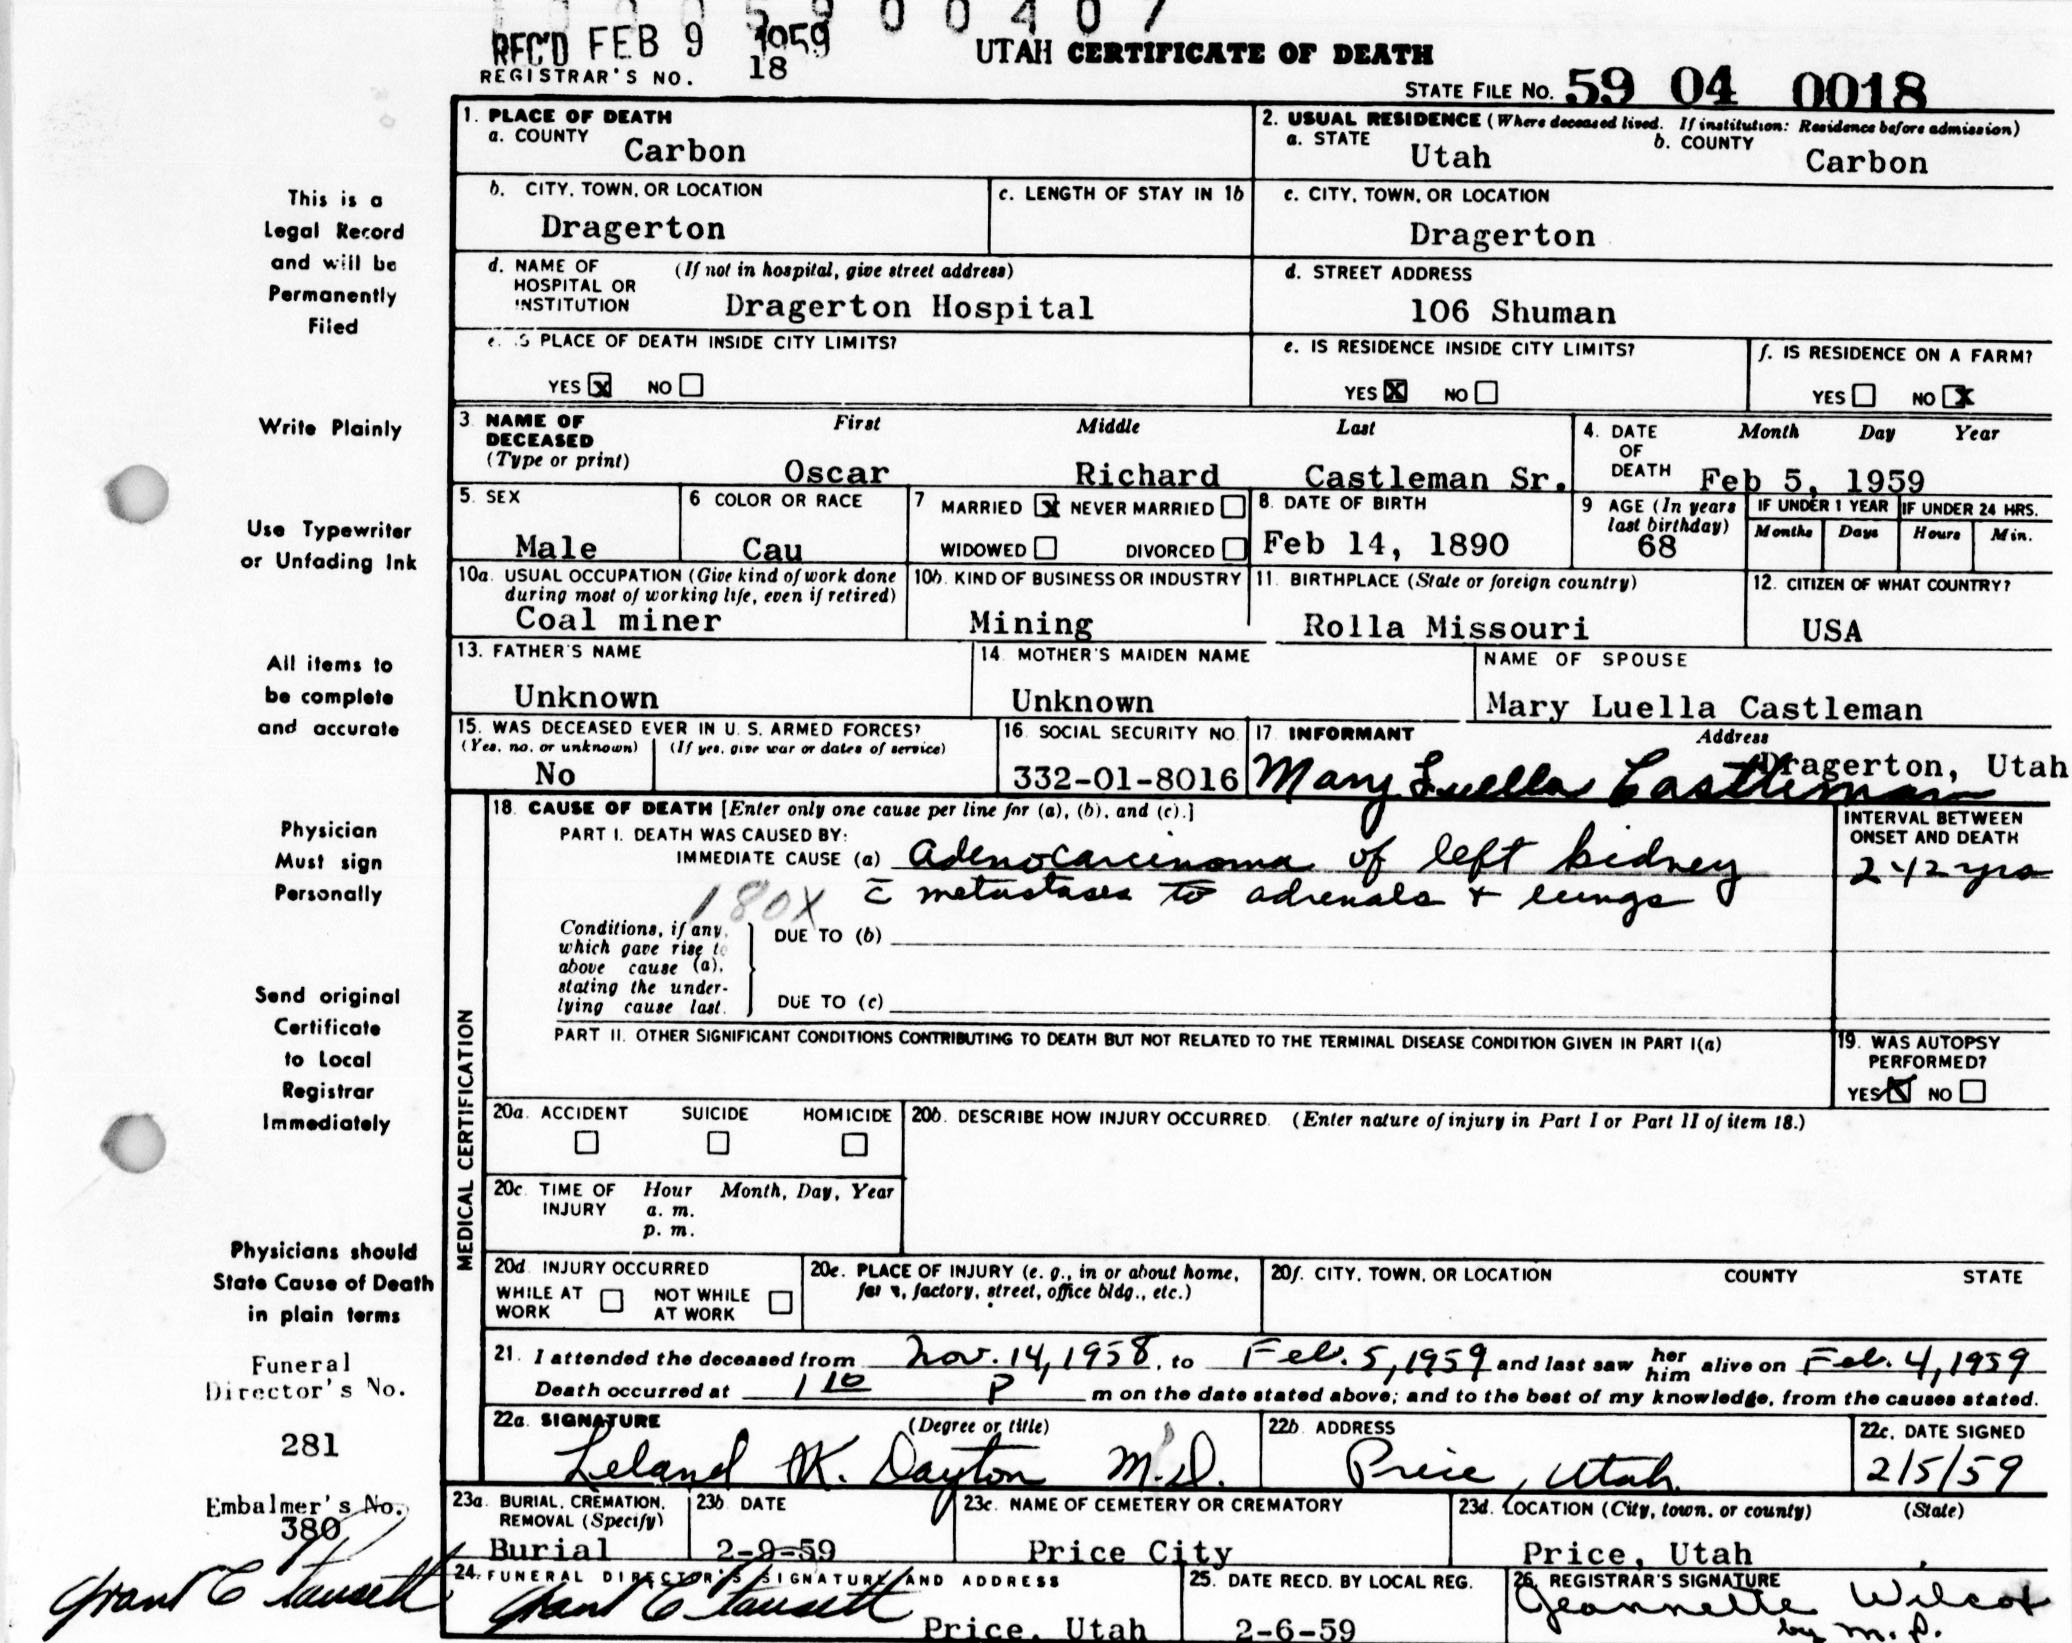 0 0 0 5 9 0 0 4 0 7
REC'D FEB 9 1959
UTAH CERTIFICATE OF DEATH
REGISTRAR'S NO. 18
STATE FILE NO. 59 04 0018
This is a
Legal Record
and will be
Permanently
Filed
Write Plainly
Use Typewriter
or Unfading Ink
All items to
be complete
and accurate
Physician
Must sign
Personally
Send original
Certificate
to Local
Registrar
Immediately
Physicians should
State Cause of Death
in plain terms
Funeral
Director's No.
281
Embalmer's No.
380
1. PLACE OF DEATH
a. COUNTY
Carbon
2. USUAL RESIDENCE (Where deceased lived. If institution: Residence before admission)
a. STATE Utah b. COUNTY Carbon
b. CITY, TOWN, OR LOCATION
Dragerton
c. LENGTH OF STAY IN 1b
c. CITY, TOWN, OR LOCATION
Dragerton
d. NAME OF HOSPITAL OR INSTITUTION (If not in hospital, give street address)
Dragerton Hospital
d. STREET ADDRESS
106 Shuman
e. IS PLACE OF DEATH INSIDE CITY LIMITS?
YES X NO
e. IS RESIDENCE INSIDE CITY LIMITS?
YES X NO
f. IS RESIDENCE ON A FARM?
YES NO X
3. NAME OF DECEASED (Type or print)
First Middle Last
Oscar Richard Castleman Sr.
4. DATE OF DEATH
Month Day Year
Feb 5, 1959
5. SEX
Male
6 COLOR OR RACE
Cau
7 MARRIED X NEVER MARRIED
WIDOWED DIVORCED
8. DATE OF BIRTH
Feb 14, 1890
9 AGE (In years last birthday)
68
IF UNDER 1 YEAR
Months Days
IF UNDER 24 HRS.
Hours Min.
10a. USUAL OCCUPATION (Give kind of work done during most of working life, even if retired)
Coal miner
10b. KIND OF BUSINESS OR INDUSTRY
Mining
11. BIRTHPLACE (State or foreign country)
Rolla Missouri
12. CITIZEN OF WHAT COUNTRY?
USA
13. FATHER'S NAME
Unknown
14. MOTHER'S MAIDEN NAME
Unknown
NAME OF SPOUSE
Mary Luella Castleman
15. WAS DECEASED EVER IN U. S. ARMED FORCES?
(Yes, no, or unknown) (If yes, give war or dates of service)
No
16. SOCIAL SECURITY NO.
332-01-8016
17 INFORMANT Address
Mary Luella Castleman Dragerton, Utah
MEDICAL CERTIFICATION
18. CAUSE OF DEATH [Enter only one cause per line for (a), (b), and (c).]
PART I. DEATH WAS CAUSED BY:
IMMEDIATE CAUSE (a) Adenocarcinoma of left kidney
c̄ metastases to adrenals + lungs
180X
INTERVAL BETWEEN ONSET AND DEATH
2 1/2 yrs
Conditions, if any, which gave rise to above cause (a), stating the underlying cause last.
DUE TO (b)
DUE TO (c)
PART II. OTHER SIGNIFICANT CONDITIONS CONTRIBUTING TO DEATH BUT NOT RELATED TO THE TERMINAL DISEASE CONDITION GIVEN IN PART I(a)
19. WAS AUTOPSY PERFORMED?
YES X NO
20a. ACCIDENT SUICIDE HOMICIDE
20b. DESCRIBE HOW INJURY OCCURRED. (Enter nature of injury in Part I or Part II of item 18.)
20c. TIME OF INJURY Hour Month, Day, Year
a. m.
p. m.
20d. INJURY OCCURRED
WHILE AT WORK NOT WHILE AT WORK
20e. PLACE OF INJURY (e. g., in or about home, farm, factory, street, office bldg., etc.)
20f. CITY, TOWN, OR LOCATION COUNTY STATE
21. I attended the deceased from Nov. 14, 1958, to Feb. 5, 1959 and last saw her him alive on Feb. 4, 1959
Death occurred at 1 10 P m on the date stated above; and to the best of my knowledge, from the causes stated.
22a. SIGNATURE (Degree or title)
Leland K. Dayton M.D.
22b. ADDRESS
Price, Utah
22c. DATE SIGNED
2/5/59
23a. BURIAL, CREMATION, REMOVAL (Specify)
Burial
23b. DATE
2-9-59
23c. NAME OF CEMETERY OR CREMATORY
Price City
23d. LOCATION (City, town, or county) (State)
Price, Utah
Grant C Fausett
24. FUNERAL DIRECTOR'S SIGNATURE AND ADDRESS
Grant C Fausett Price, Utah
25. DATE RECD. BY LOCAL REG.
2-6-59
26. REGISTRAR'S SIGNATURE
Jeannette Wilcox
by M. P.